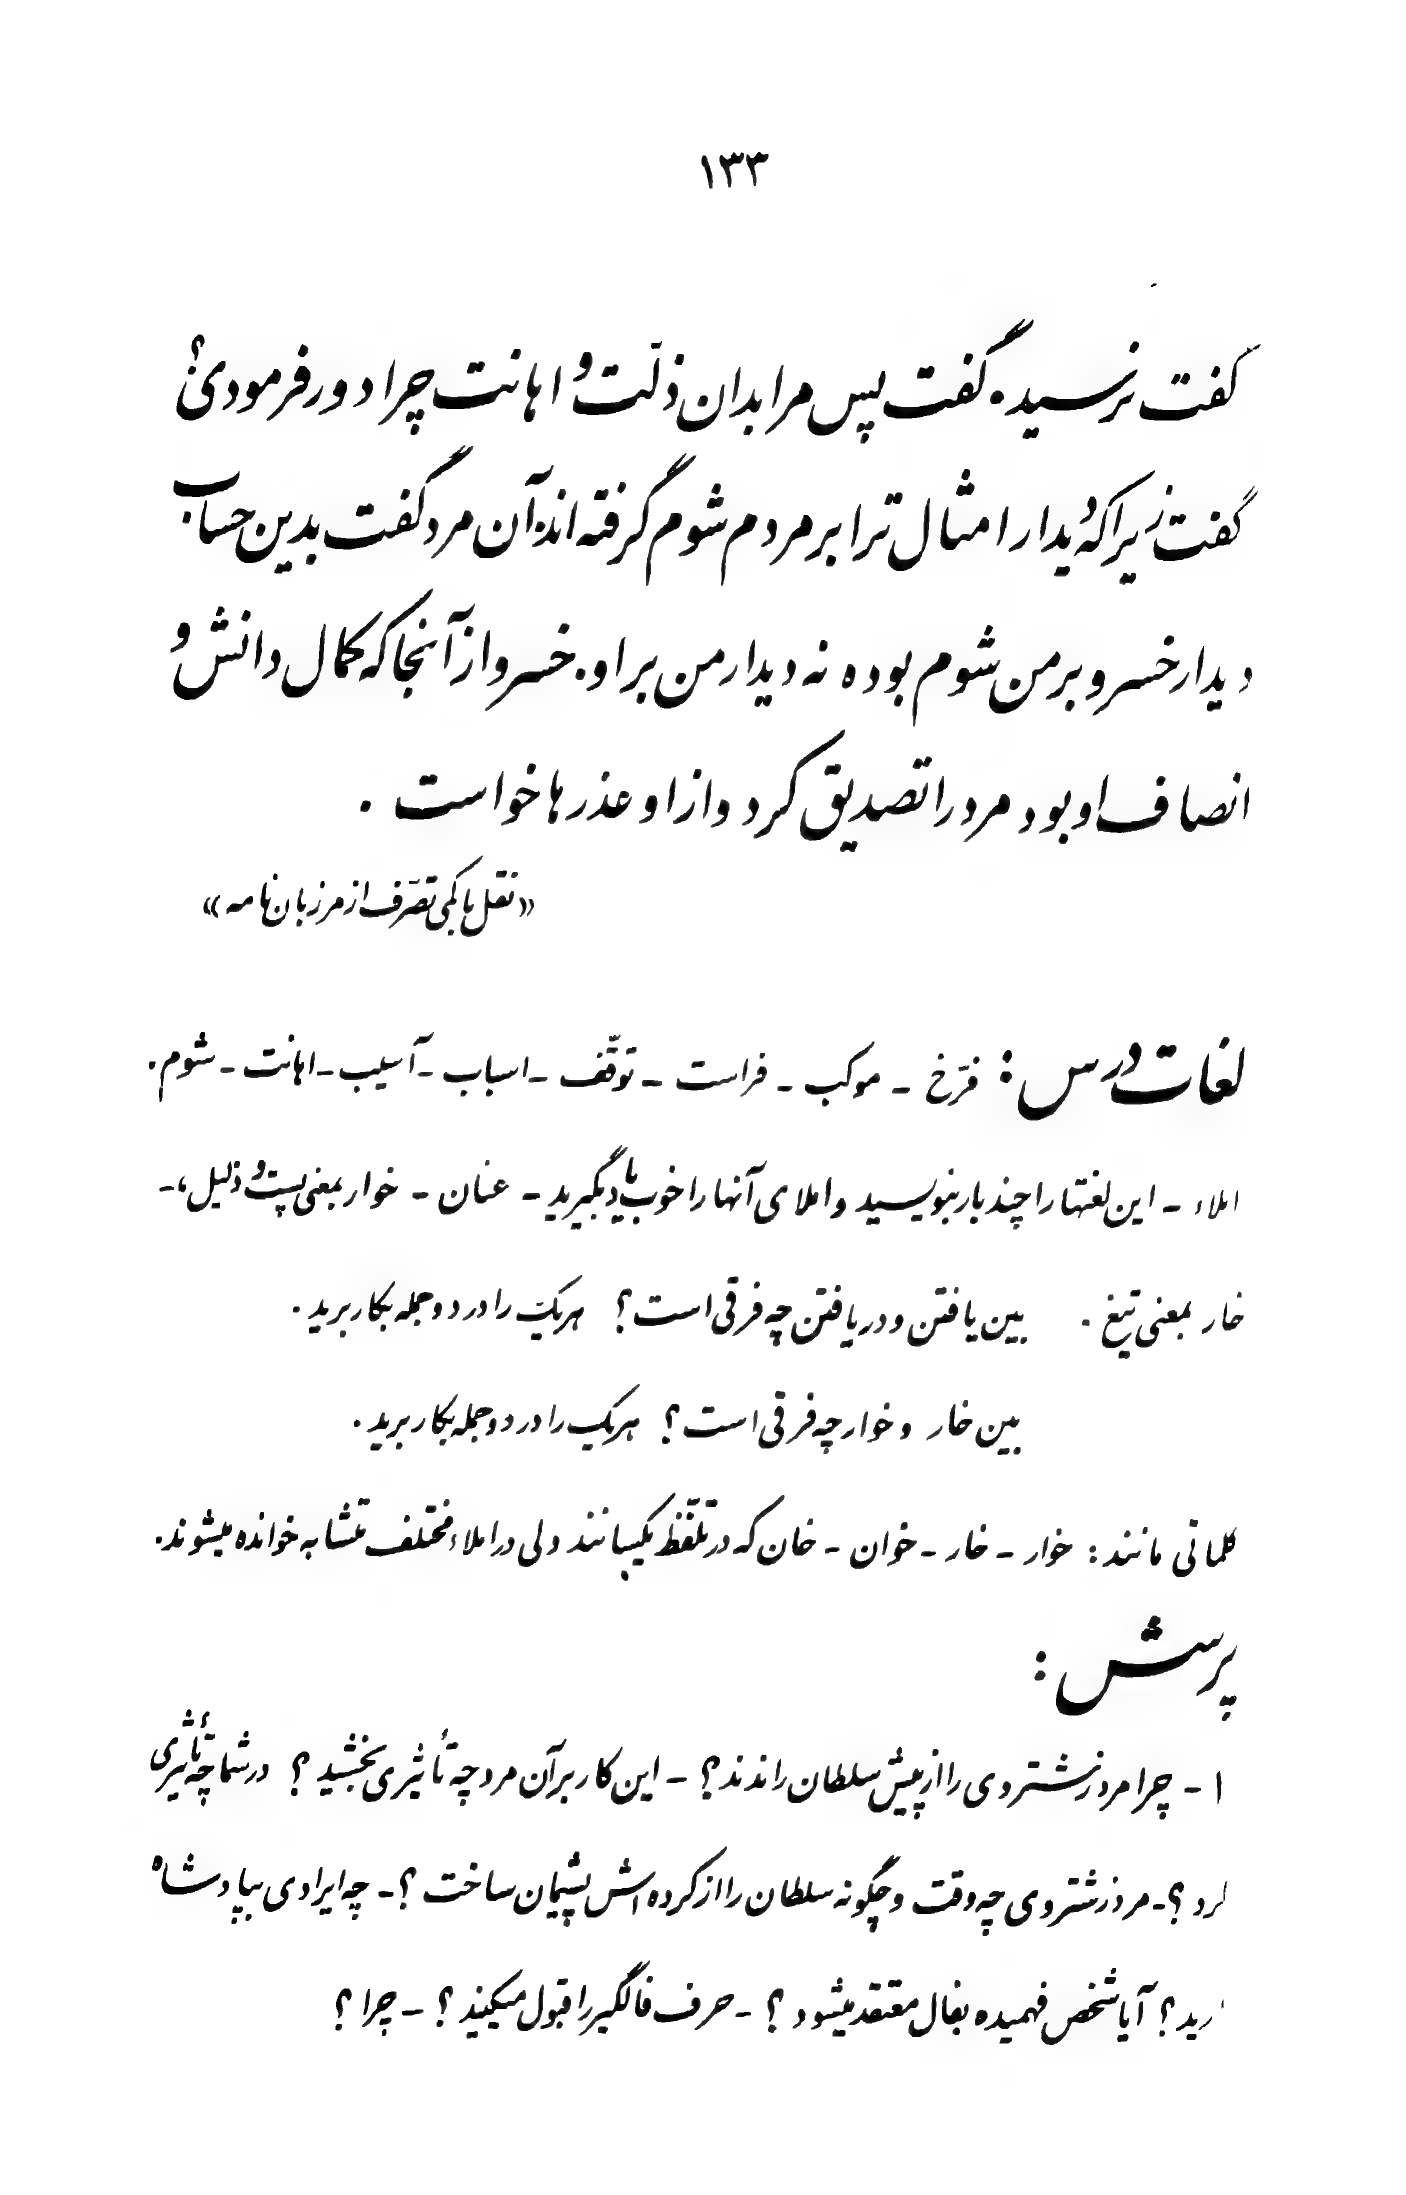 ۱۳۳
گفت نرسید. گفت پس مرا بدان ذلّت و اهانت چرا دور فرمودی؟
گفت زیرا که دیدار امثال ترا بر مردم شوم گرفته اند. آن مرد گفت بدین حساب
دیدار خسرو بر من شوم بوده نه دیدار من بر او. خسرو از آنجا که کمال دانش و
انصاف او بود مرد را تصدیق کرد و از او عذرها خواست .
«نقل با کمی تصّرف از مرزبان نامه»
لغات درس : فرّخ - موکب - فراست - توقّف - اسباب - آسیب - اهانت - شوم.
املاء - این لغتها را چند بار بنویسید و املای آنها را خوب یاد بگیرید - عنان - خوار بمعنی پست و ذلیل، -
خار بمعنی تیغ . بین یافتن و دریافتن چه فرقی است ؟ هر یک را در دو جمله بکار برید .
بین خار و خوار چه فرقی است ؟ هر یک را در دو جمله بکار برید .
کلماتی مانند : خوار - خار - خوان - خان که در تلفّظ یکسانند ولی در املاء مختلف متشابه خوانده میشوند.
پرسش :
۱ - چرا مرد زشتروی را از پیش سلطان راندند ؟ - این کار بر آن مرد چه تأثیری بخشید ؟ در شما چه تأثیری
کرد ؟ - مرد زشتروی چه وقت و چگونه سلطان را از کرده اش پشیمان ساخت ؟ - چه ایرادی بپادشاه
دارید ؟ آیا شخص فهمیده بفال معتقد میشود ؟ - حرف فالگیر را قبول میکنید ؟ - چرا ؟